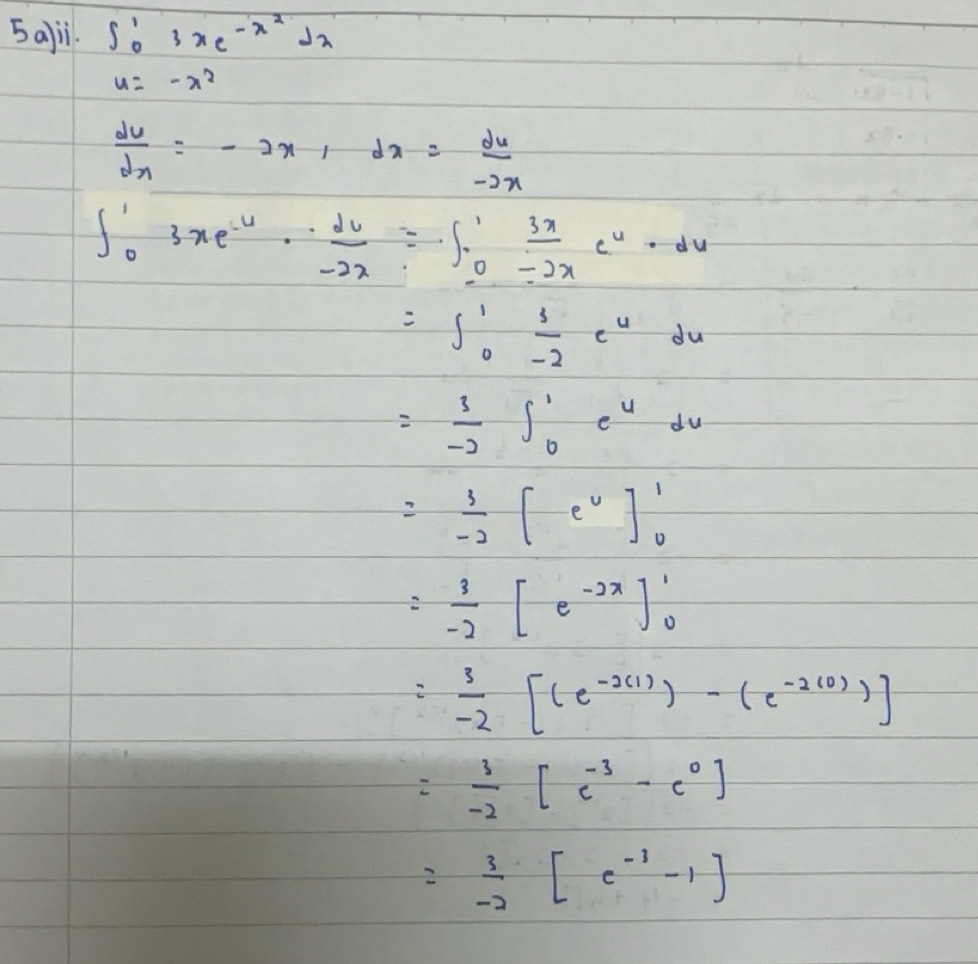 5a)ii. ∫₀¹ 3xe^(-x²) dx
u = -x²
du/dx = -2x, dx = du/-2x
∫₀¹ 3xe^u · du/-2x = ∫₀¹ 3x/-2x e^u · du
= ∫₀¹ 3/-2 e^u du
= 3/-2 ∫₀¹ e^u du
= 3/-2 [e^u]₀¹
= 3/-2 [e^(-2x)]₀¹
= 3/-2 [(e^(-2(1))) - (e^(-2(0)))]
= 3/-2 [e^(-3) - e^0]
= 3/-2 [e^(-3) - 1]